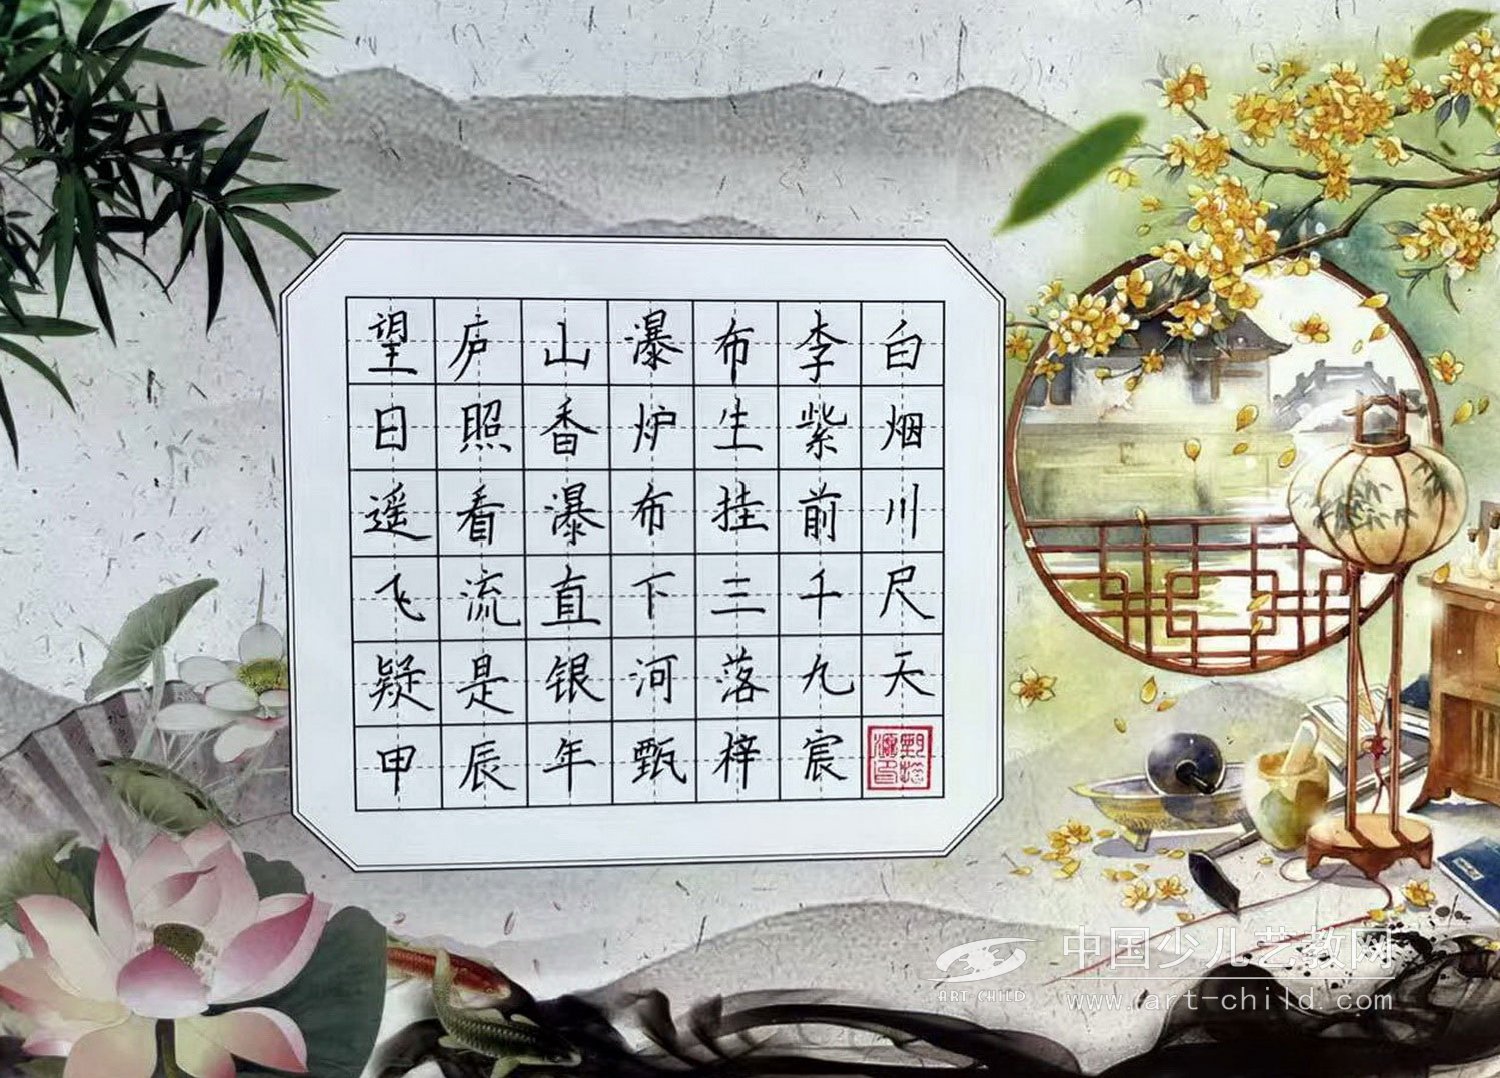 望庐山瀑布李白
日照香炉生紫烟
遥看瀑布挂前川
飞流直下三千尺
疑是银河落九天
甲辰年甄梓宸
中国少儿艺教网
ART CHILD
www.art-child.com